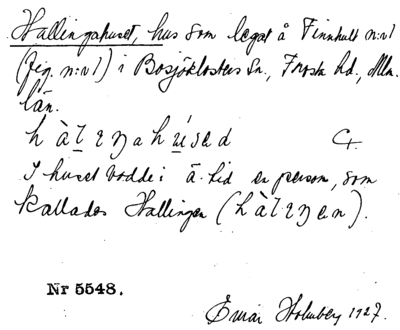 Hallingahuset, hus som legat å Finnhult n:r 1
(fig. n:r 1) i Bosjöklosters Sn., Frosta hd., Mlm.
län.
hàlıŋahúsəd
I huset bodde i ä. tid en person, som
kallades Hallingen (hàlıŋen).
Nr 5548.
Holmberg 1927.